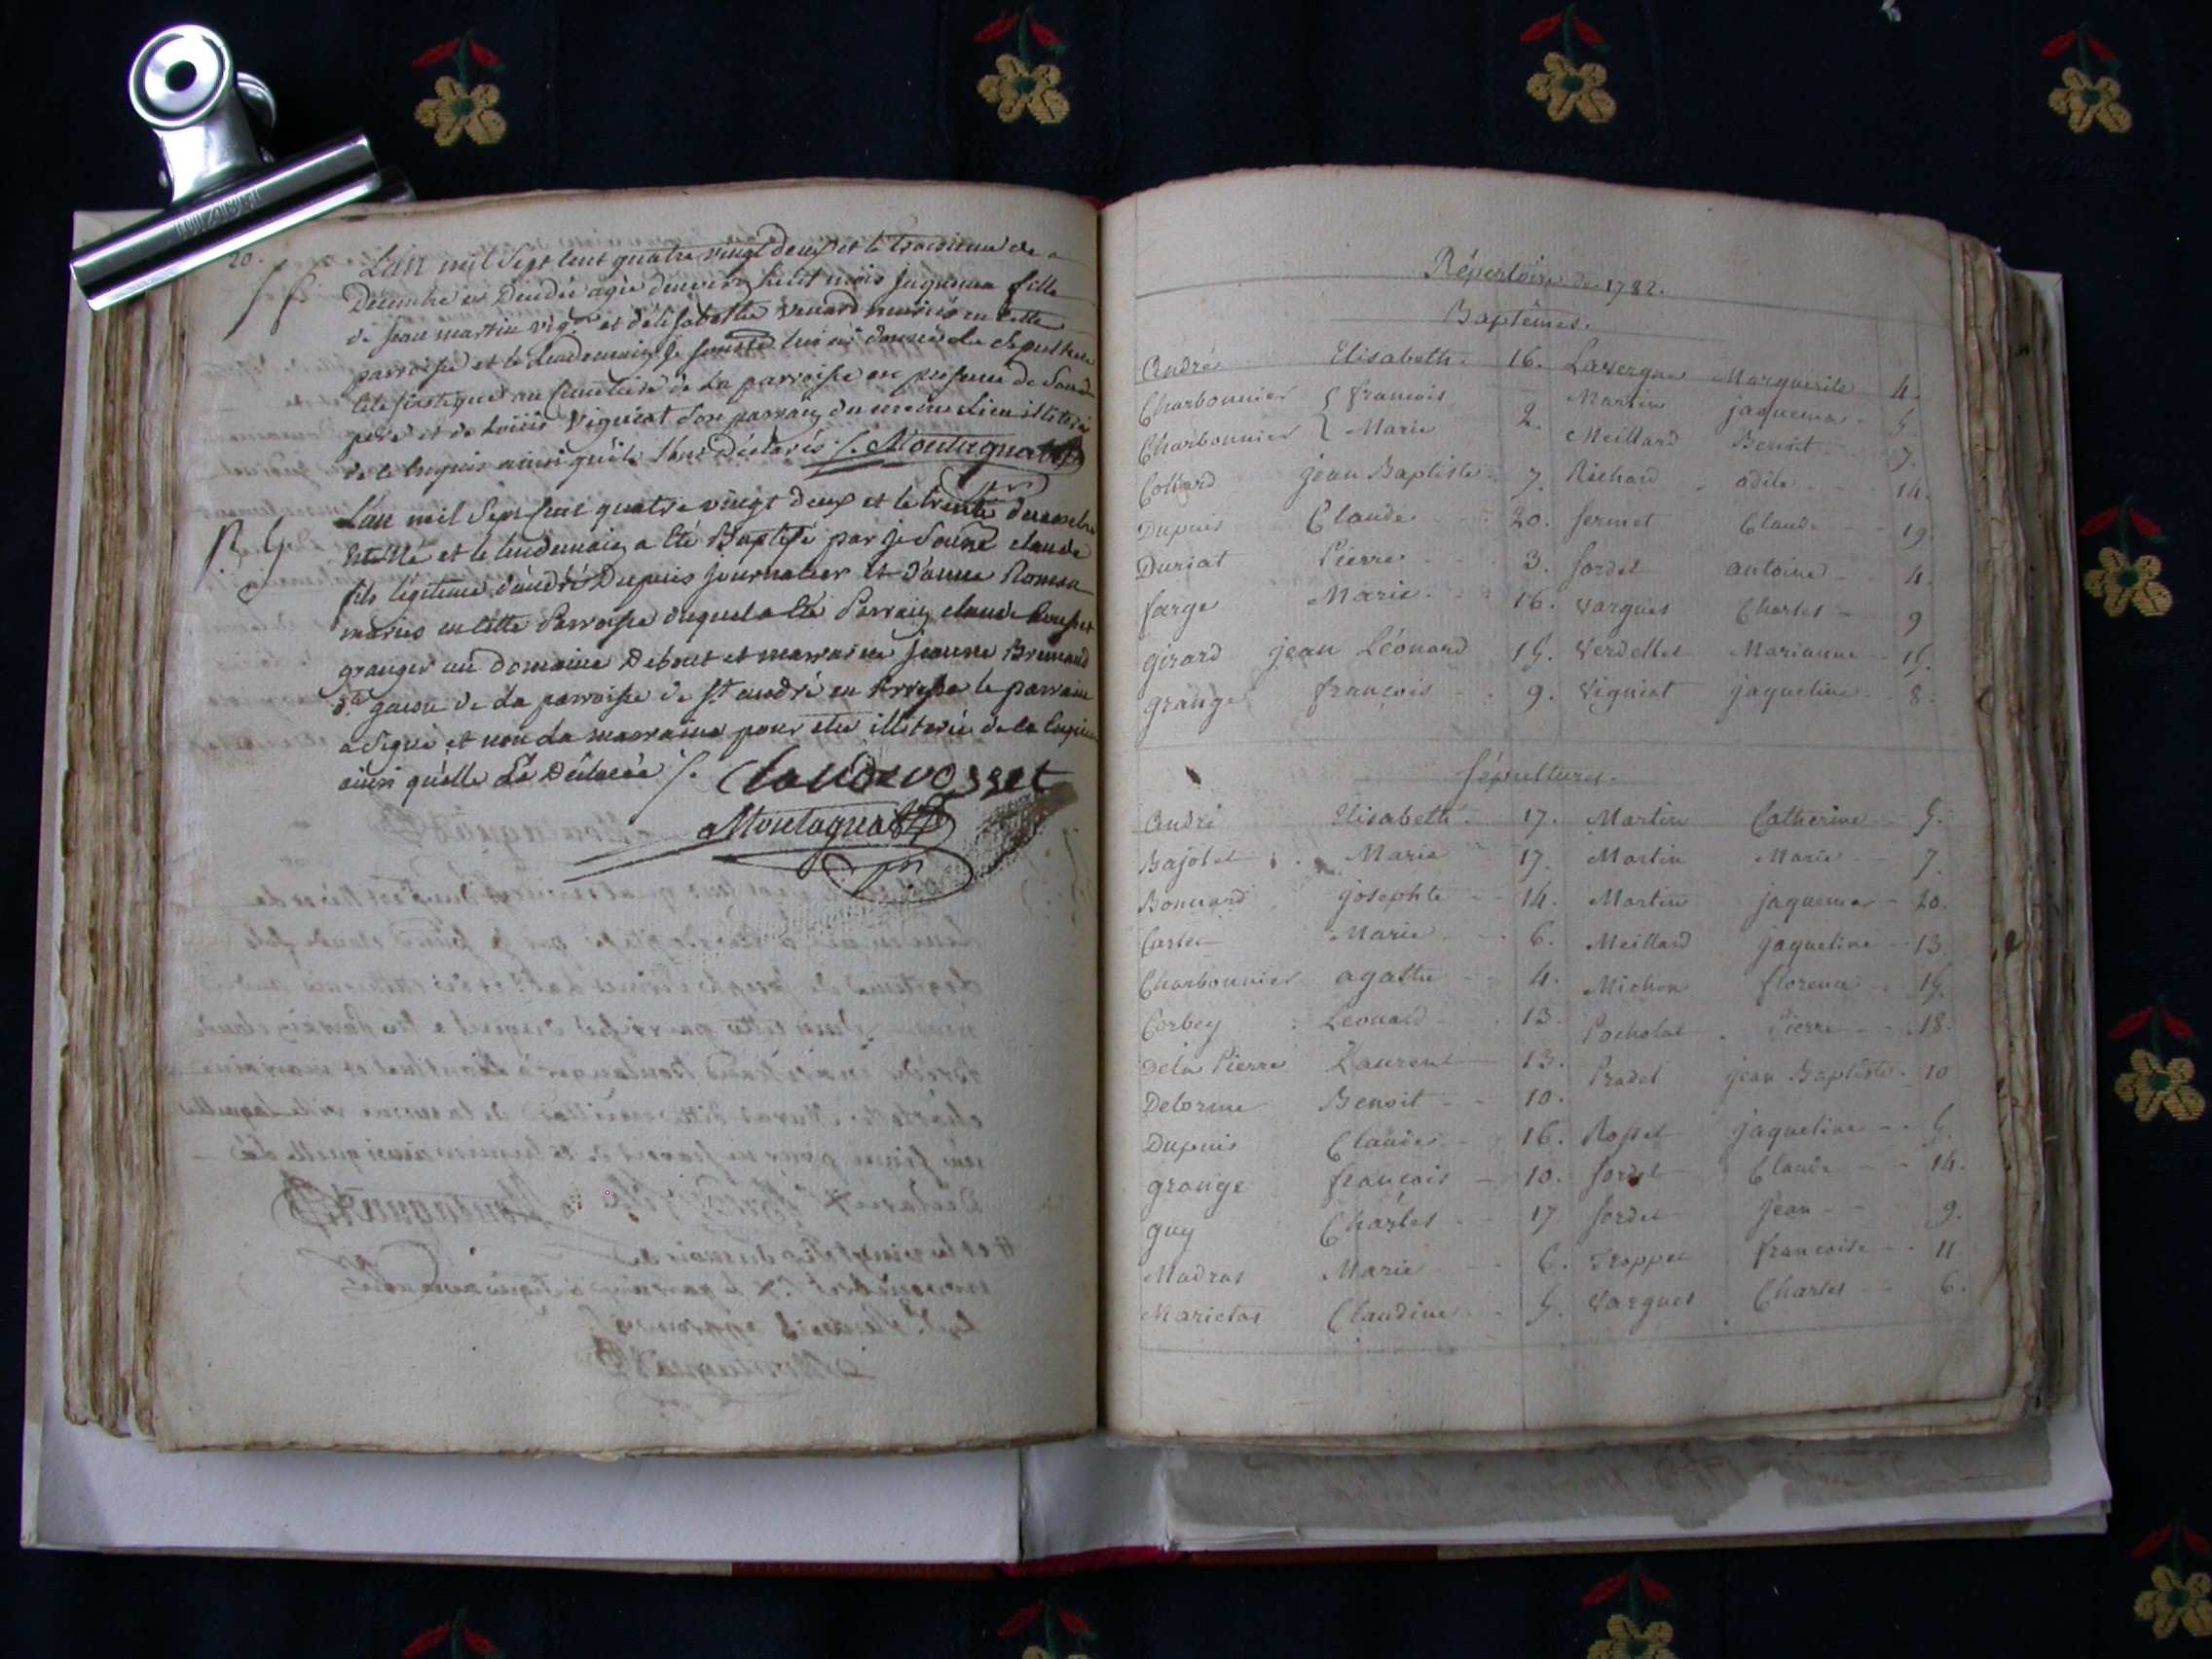 20.
L'an mil Sept Cent quatre vingt deux et le troisieme de
Decembre est Decedée agée d'environ huit mois jaquema fille
de jean martin vig.on et d'elisabethe Venard mariés en cette
parroisse et le lendemain je soussé lui ai donné la sepulture
Eclesiastique au Cimetiere de la parroisse en presence de Sond.
pere et de Loüis Vigniat Son parrain du meme Lieu illiteré
de le Enquis ainsi qu'ils l'ont déclarés /. Montagnat
B. G
L'an mil Sept Cent quatre vingt deux et le trente decembre
Est Né et le lendemain a été Baptisé par je Sousné claude
fils légitime d'andré Dupuis journalier et d'anne
mariés en Cette Parroisse duquel a été Parrain claude
granger au Domaine et marraine jeanne
de la parroisse de St. andré en Bresse le parrain
a Signé et non la marraine pour etre illiterée de le Enquise
ainsi qu'elle L'a Déclarée /. Claude vosset
Montagnat
Répertoire de 1782.
Baptêmes.
André Elisabeth. 16. Lavergne Marguerite 4.
Charbonnier { françois Martin jaquema 5.
Charbonnier { Marie 2. Meillard Benoit 7.
Collard jean Baptiste 7. Richard odile 14.
Dupuis Claude 20. Sermet Claude 19.
Duriat Pierre 3. Sordet antoine 4.
farge Marie 16. Vargues Charles 9
girard jean Léonard 15. Verdellet Marianne 15.
grange françois 9. Vigniat jaqueline 8.
Sépultures.
André Elisabeth 17. Martin Catherine 5.
Bajolet Marie 17. Martin Marie 7.
Bonnard josephte 14. Martin jaquema 20.
Carlet Marie 6. Meillard jaqueline 13.
Charbonnier agathe 4. Michon florena 15.
Corbey Leonard 13. Pocholat Pierre 18.
Dela Pierre Laurent 13. Pradel jean Baptiste 10
Delorme Benoit 10.
Dupuis Claude 16. Ropet jaqueline 5.
grange françois 10. Sordet Claude 14.
guy Charles 17 Sordet jean 9.
Madras Marie 6. Troppet françoise 11
Marietas Claudine 5. Vargues Charles 6.